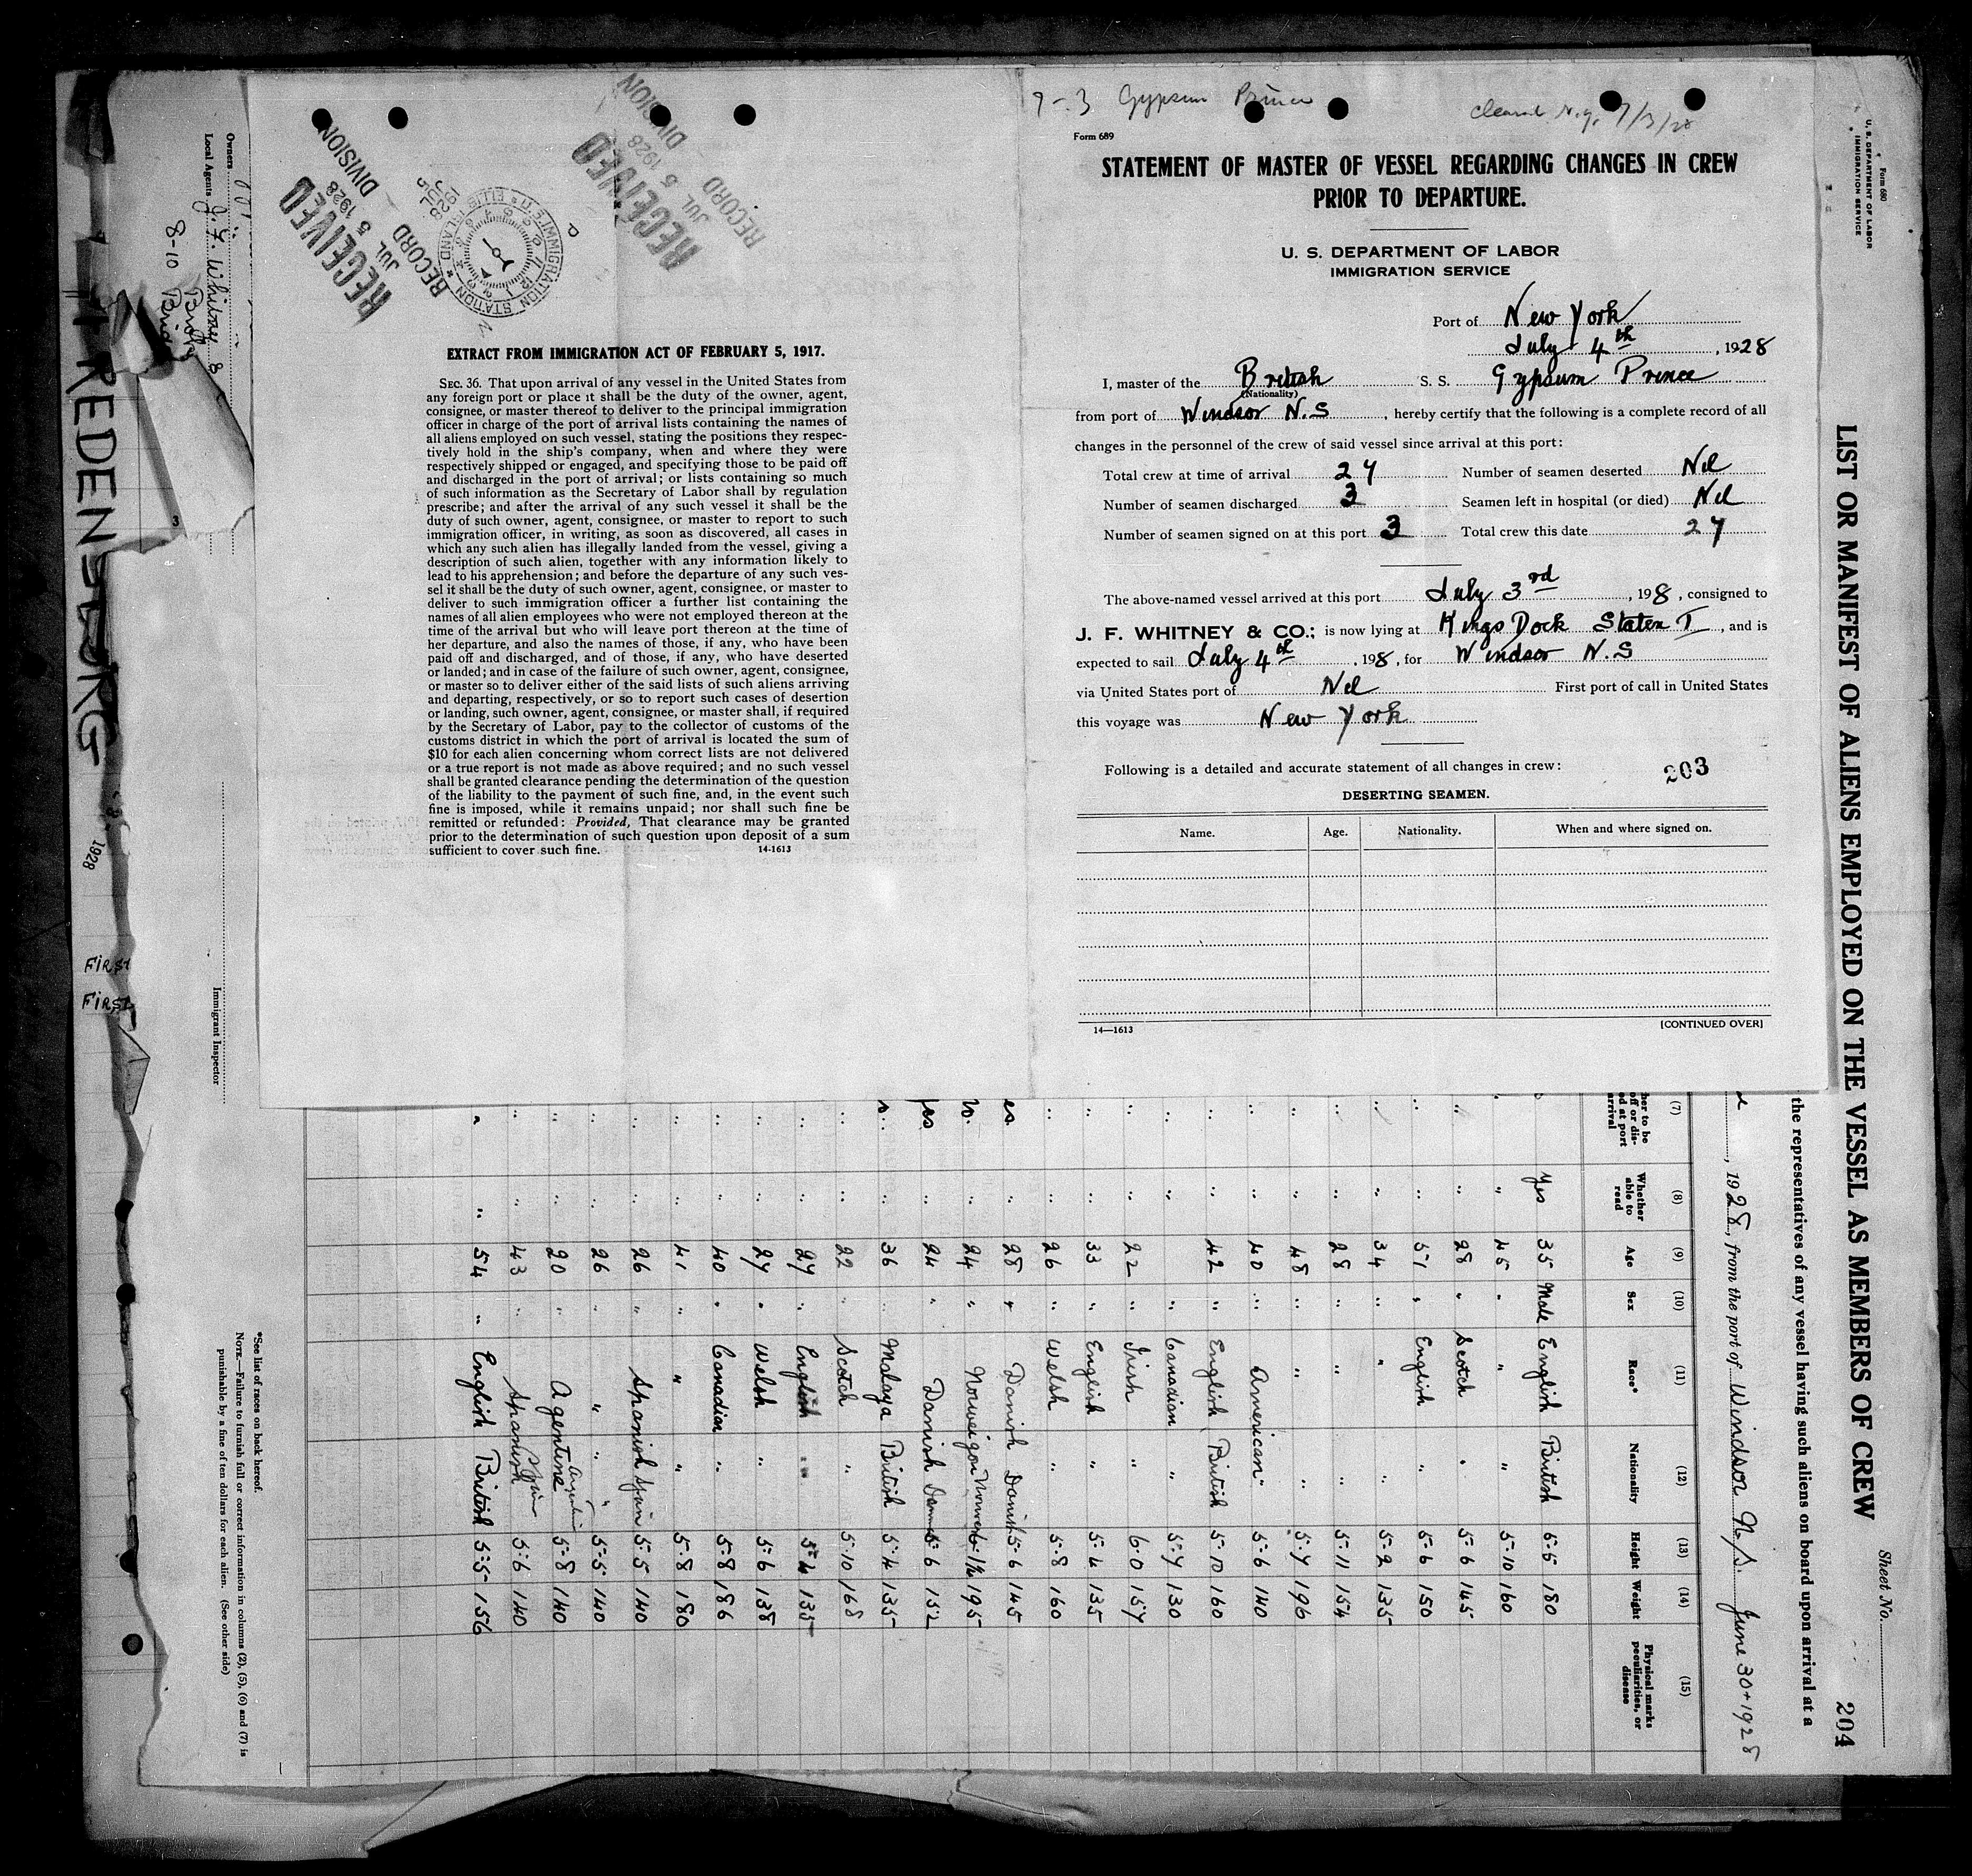 9-3 Gypsum Prince
Form 689
STATEMENT OF MASTER OF VESSEL REGARDING CHANGES IN CREW
PRIOR TO DEPARTURE.
U. S. DEPARTMENT OF LABOR
IMMIGRATION SERVICE
Port of New York
July 4th, 1928
I, master of the British S. S. Gypsum Prince
(Nationality)
from port of Windsor N.S, hereby certify that the following is a complete record of all
changes in the personnel of the crew of said vessel since arrival at this port:
Total crew at time of arrival 27 Number of seamen deserted Nil
Number of seamen discharged 3 Seamen left in hospital (or died) Nil
Number of seamen signed on at this port 3 Total crew this date 27
The above-named vessel arrived at this port July 3rd, 198, consigned to
J. F. WHITNEY & CO.; is now lying at Kings Dock Staten I, and is
expected to sail July 4th, 198, for Windsor N.S
via United States port of Nil First port of call in United States
this voyage was New York
Following is a detailed and accurate statement of all changes in crew: 203
DESERTING SEAMEN.
Name. Age. Nationality. When and where signed on.
14—1613 [CONTINUED OVER]
RECEIVED
JUL 5 1928
RECORD DIVISION
RECEIVED
JUL 5 1928
RECORD DIVISION
IMMIGRATION STATION ELLIS ISLAND
1928 JUL 5
EXTRACT FROM IMMIGRATION ACT OF FEBRUARY 5, 1917.
SEC. 36. That upon arrival of any vessel in the United States from
any foreign port or place it shall be the duty of the owner, agent,
consignee, or master thereof to deliver to the principal immigration
officer in charge of the port of arrival lists containing the names of
all aliens employed on such vessel, stating the positions they respec-
tively hold in the ship's company, when and where they were
respectively shipped or engaged, and specifying those to be paid off
and discharged in the port of arrival; or lists containing so much
of such information as the Secretary of Labor shall by regulation
prescribe; and after the arrival of any such vessel it shall be the
duty of such owner, agent, consignee, or master to report to such
immigration officer, in writing, as soon as discovered, all cases in
which any such alien has illegally landed from the vessel, giving a
description of such alien, together with any information likely to
lead to his apprehension; and before the departure of any such ves-
sel it shall be the duty of such owner, agent, consignee, or master to
deliver to such immigration officer a further list containing the
names of all alien employees who were not employed thereon at the
time of the arrival but who will leave port thereon at the time of
her departure, and also the names of those, if any, who have been
paid off and discharged, and of those, if any, who have deserted
or landed; and in case of the failure of such owner, agent, consignee,
or master so to deliver either of the said lists of such aliens arriving
and departing, respectively, or so to report such cases of desertion
or landing, such owner, agent, consignee, or master shall, if required
by the Secretary of Labor, pay to the collector of customs of the
customs district in which the port of arrival is located the sum of
$10 for each alien concerning whom correct lists are not delivered
or a true report is not made as above required; and no such vessel
shall be granted clearance pending the determination of the question
of the liability to the payment of such fine, and, in the event such
fine is imposed, while it remains unpaid; nor shall such fine be
remitted or refunded: Provided, That clearance may be granted
prior to the determination of such question upon deposit of a sum
sufficient to cover such fine. 14-1613
Form 680
U. S. DEPARTMENT OF LABOR
IMMIGRATION SERVICE
Sheet No. 204
LIST OR MANIFEST OF ALIENS EMPLOYED ON THE VESSEL AS MEMBERS OF CREW
the representatives of any vessel having such aliens on board upon arrival at a
, 1928, from the port of Windsor N.S. June 30 1928
(7) (8) (9) (10) (11) (12) (13) (14) (15)
Whether able to read Age Sex Race* Nationality Height Weight Physical marks, peculiarities, or disease
Yes 35 Male English British 5·5 180
" 45 " " " 5·10 160
" 28 " Scotch " 5·6 145
" 51 " English " 5·6 150
" 34 " " " 5·2 135
" 28 " " " 5·11 154
" 48 " " " 5·7 196
" 40 " American " 5·6 140
" 42 " English British 5·10 160
" " Canadian " 5·7 130
" 22 " Irish " 6·0 157
" 33 " English " 5·4 135
" 26 " Welsh " 5·8 160
" 28 " Danish Danish 5·6 145
" 24 " Norweigon 195
" 24 " Danish 5·6 152
" 36 " Malaya British 5·4 135
" 22 " Scotch " 5·10 168
" 27 " English " 5·4 135
" 27 " Welsh " 5·6 138
" 40 " Canadian " 5·8 186
" 41 " " " 5·8 180
" 26 " Spanish Spain 5·5 140
" 26 " " " 5·5 140
" 20 " Agentine 5·8 140
" 43 " Spanish Spain 5·6 140
" 54 " English British 5·5 156
*See list of races on back hereof.
NOTE.—Failure to furnish full or correct information in columns (2), (5), (6) and (7) is
punishable by a fine of ten dollars for each alien. (See other side)
Immigrant Inspector
Owners
Local Agents J. F. Whitney
8-10 Bridge
REDENSBURG
1928
FIRST
FIRST